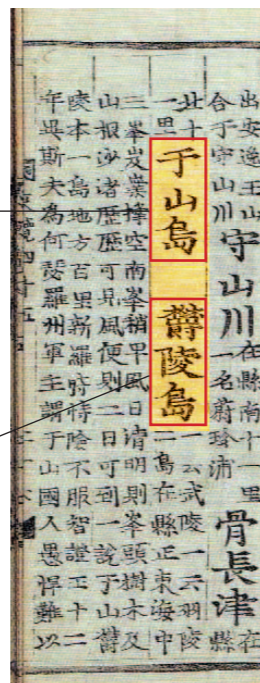 出安逸王山
合于守山川
守山川
在縣南十一里
一名蔚珍浦
骨長津
在
縣
北十
一里
于山島
鬱陵島
一云武陵一云羽陵
二島在縣正東海中
三峯岌嶪撑空南峯稍卑風日清明則峯頭樹木及
山根沙渚歷歷可見風便則二日可到一說于山鬱
陵本一島地方百里新羅時恃險不服智證王十二
年異斯夫爲何瑟羅州軍主謂于山國人愚悍難以